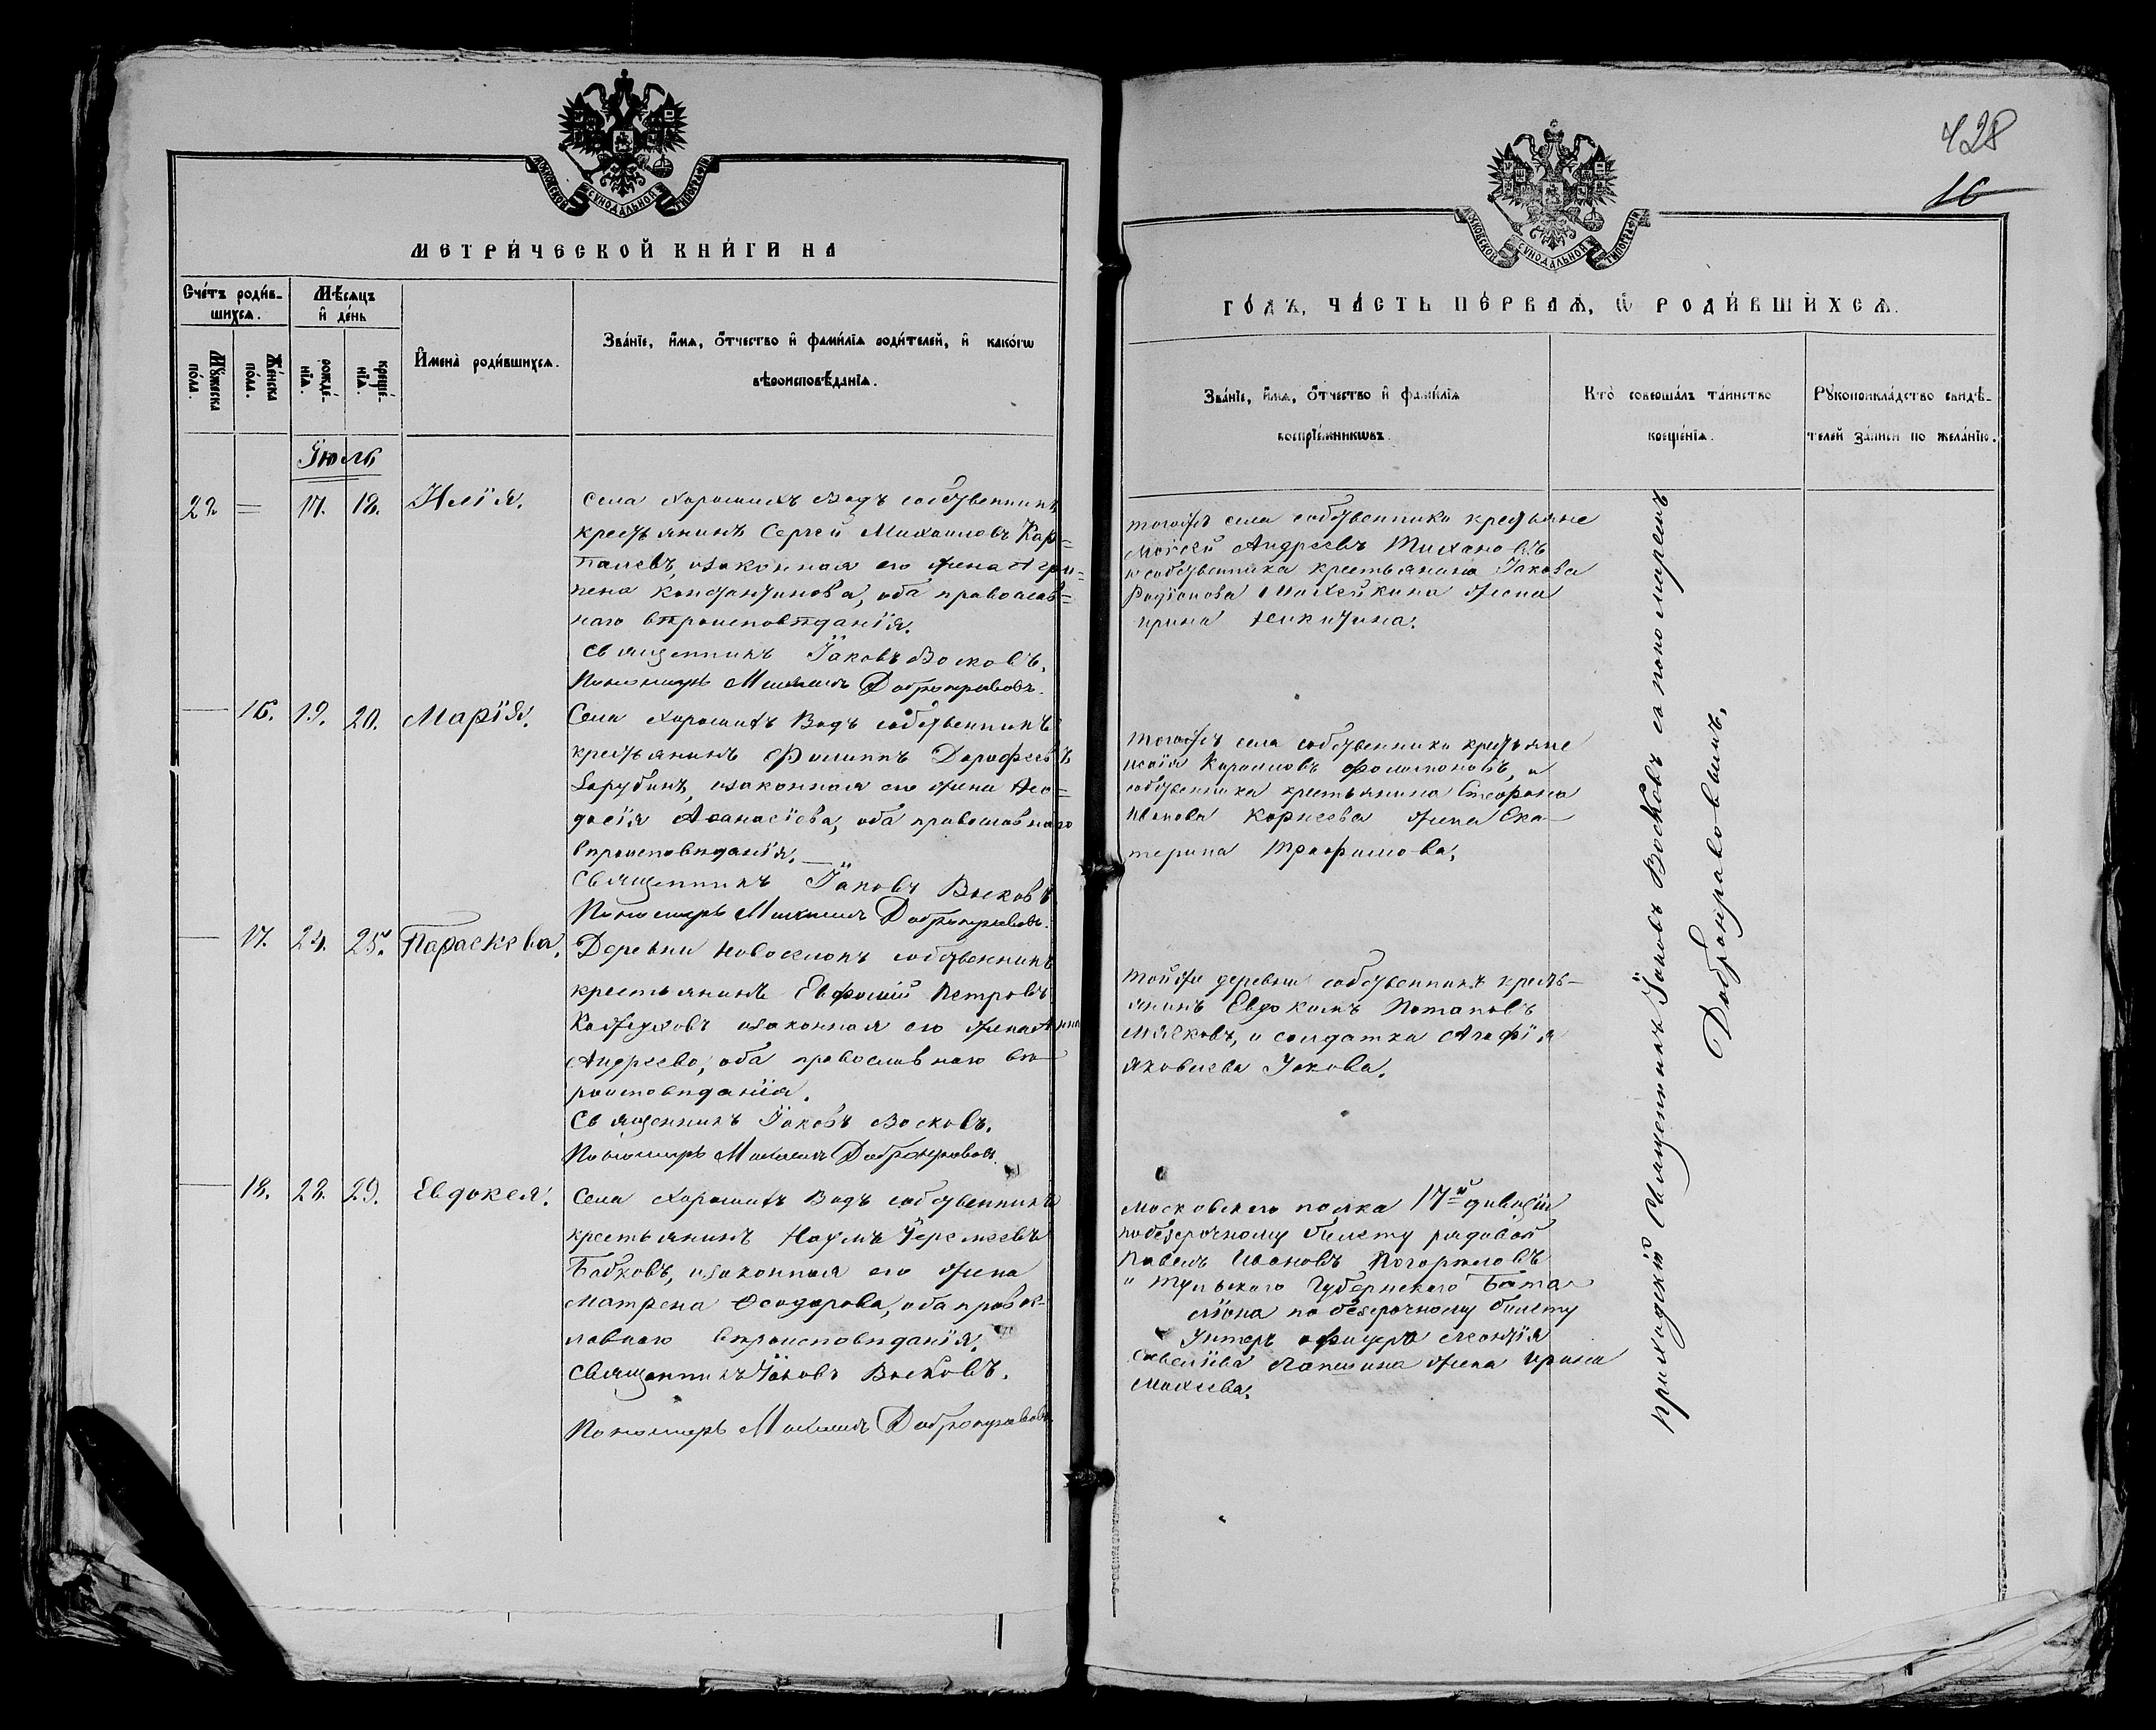 МОСКОВСКОЙ СѴНОДАЛЬНОЙ ТИПОГРАФІИ
МЕТРИ́ЧЕСКОЙ КНИ́ГИ НА
Счетъ роди́в-
шихсѧ.
Мѣ́сѧцъ
и҆ де́нь
Мꙋ́жеска
по́ла.
Же́нска
по́ла.
рожде́-
нїѧ.
креще́-
нїѧ.
И҆мена̀ роди́вшихсѧ.
Зва́нїе, и҆́мѧ, ѻ҆́тчество и҆ фами́лїѧ роди́телей, и҆ како́гѡ
вѣроисповѣ́данїѧ.
Іюль
22 = 17. 18. Илія.
Села Хорошихъ Водъ собственникъ
крестьянинъ Сергей Михаиловъ Кар=
талевъ, изаконная его жена Агри=
пена Константинова, оба православ=
наго вѣроисповѣданія.
Священникъ Іаковъ Восковъ.
Пономарь Михаилъ Добронравовъ.
— 16. 19. 20. Марія.
Села Хорошихъ Водъ собственникъ
крестьянинъ Филиппъ Дорофеевъ
Зарубинъ, изаконная его жена Фео=
досія Афанасіева, оба православнаго
вѣроисповѣданія.
Священникъ Іаковъ Восковъ
Пономарь Михаилъ Добронравовъ.
— 17. 24. 25. Параскева.
Деревни Новоселокъ собственникъ
крестьянинъ Евфимій Петровъ
изаконная его жена Анна
Андреева, оба православнаго вѣ-
роисповѣданія.
Священникъ Іаковъ Восковъ.
Пономарь Михаилъ Добронравовъ.
— 18. 28. 29. Евдокея.
Села Хорошихъ Водъ собственникъ
крестьянинъ Наумъ Іеремеевъ
Бабковъ, изаконная его жена
Матрена Феодорова, оба правос-
лавнаго вѣроисповѣданія.
Священникъ Іаковъ Восковъ.
Пономарь Михаилъ Добронравовъ.
428
16
МОСКОВСКОЙ СѴНОДАЛЬНОЙ ТИПОГРАФІИ
ГО́ДЪ, ЧА́СТЬ ПЕ́РВАѦ, Ѡ҆ РОДИ́ВШИХСѦ.
Зва́нїе, и҆́мѧ, ѻ҆́тчество и҆ фами́лїѧ
воспрїе́мникѡвъ.
Кто̀ соверша́лъ та́инство
креще́нїѧ.
Рꙋкоприкла́дство свидѣ́-
телей за́писи по жела́нїю.
тогожъ села собственники крестьяне
Моисей Андреевъ Тихановъ
и собственника крестьянина Іакова
Родіонова Михейкина жена
Ирина Никитина.
тогожъ села собственники крестьяне
Исаія Карповъ Филипповъ, и
собственника крестьянина Стефана
Иванова Корнеева жена Ека-
терина Трофимова.
тойже деревни собственникъ кресть-
янинъ Евдокимъ Потаповъ
Мясковъ, и солдатка Агафія
Яковлева Ускова.
Московскаго полка 17й дивизіи
побезсрочному билету рядовой
Павелъ Ивановъ
и Тульскаго Губернскаго Бата-
ліона по безсрочному билету
Унтеръ офицера Леонтія
Савельева Лапшина жена Ирина
Михеева.
приходскій Священникъ Іаковъ Восковъ съ пономаремъ
Добронравовымъ.